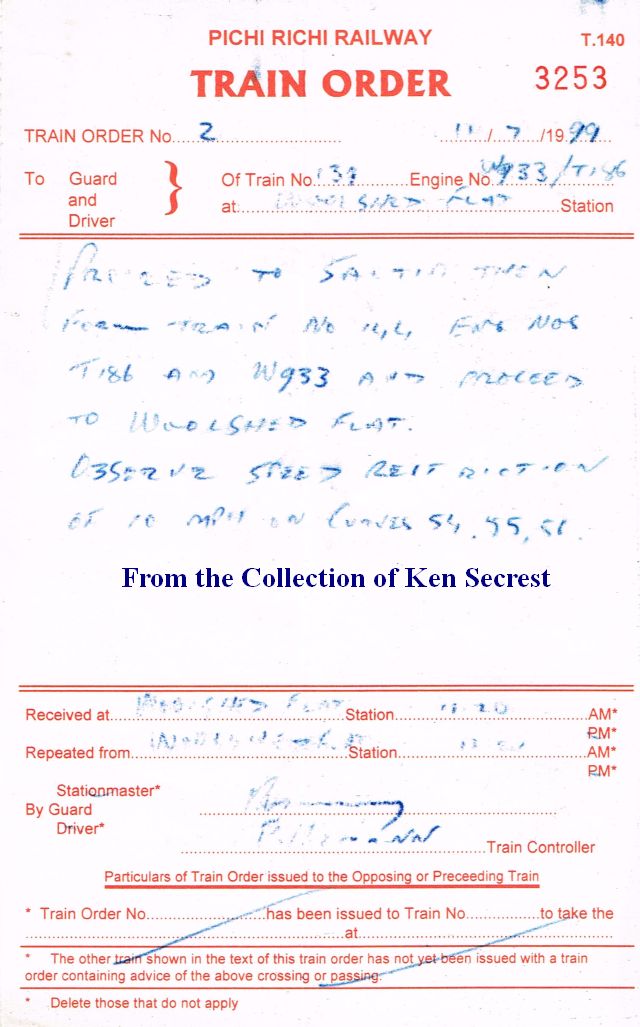 PICHI RICHI RAILWAY
T.140
TRAIN ORDER
3253
TRAIN ORDER No. 2 11/7/1999
To Guard and Driver
Of Train No. Engine No. W933/T186
at: WOOLSHED FLAT Station
PROCEED TO SALTIA THEN
FORM TRAIN NO 144 ENG NOS
T186 AND W933 AND PROCEED
TO WOOLSHED FLAT.
OBSERVE SPEED RESTRICTION
OF 10 MPH ON CURVES 54, 55, 56.
From the Collection of Ken Secrest
Received at WOOLSHED FLAT Station AM*
PM*
Repeated from Station AM*
PM*
Stationmaster*
By Guard
Driver*
Train Controller
Particulars of Train Order issued to the Opposing or Preceeding Train
* Train Order No. has been issued to Train No. to take the
at
* The other train shown in the text of this train order has not yet been issued with a train
order containing advice of the above crossing or passing.
* Delete those that do not apply